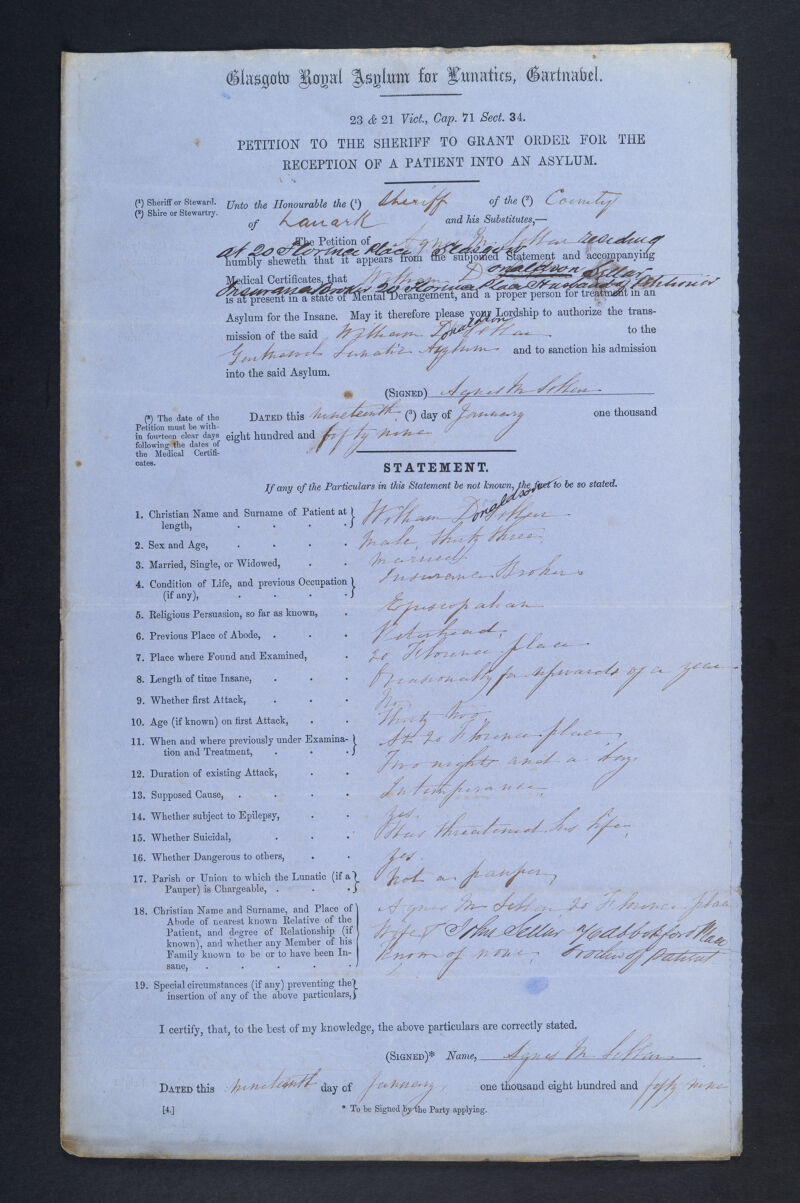 Glasgow Royal Asylum for Lunatics, Gartnabel.
23 & 21 Vict., Cap. 71 Sect. 34.
PETITION TO THE SHERIFF TO GRANT ORDER FOR THE
RECEPTION OF A PATIENT INTO AN ASYLUM.
(¹) Sheriff or Steward.
(²) Shire or Stewartry.
Unto the Honourable the (¹) Sheriff of the (²) County
of Lanark and his Substitutes,—
The Petition of Agnes M Sellar residing
at 20 Florence Place Glasgow
humbly sheweth that it appears from the subjoined Statement and accompanying
Medical Certificates, that William Donaldson Sellar
Insurance Broker 20 Florence Place Husband of Petitioner
is at present in a state of Mental Derangement, and a proper person for treatment in an
Asylum for the Insane. May it therefore please your Lordship to authorize the trans-
mission of the said William Donaldson Sellar to the
Lunatic Asylum and to sanction his admission
into the said Asylum.
(SIGNED) Agnes M Sellar
(³) The date of the
Petition must be with-
in fourteen clear days
following the dates of
the Medical Certifi-
cates.
DATED this nineteenth (³) day of January one thousand
eight hundred and fifty nine
STATEMENT.
If any of the Particulars in this Statement be not known, the fact to be so stated.
1. Christian Name and Surname of Patient at length, William Donaldson Sellar
2. Sex and Age, Male Thirty three
3. Married, Single, or Widowed, Married
4. Condition of Life, and previous Occupation (if any), Insurance Broker
5. Religious Persuasion, so far as known, Episcopalian
6. Previous Place of Abode, Peterhead
7. Place where Found and Examined, 20 Florence place
8. Length of time Insane, Occasionally for upwards of a year
9. Whether first Attack, No
10. Age (if known) on first Attack, Thirty two
11. When and where previously under Examina-
tion and Treatment, At 20 Florence place
12. Duration of existing Attack, Two nights and a day
13. Supposed Cause, Intemperance
14. Whether subject to Epilepsy, yes.
15. Whether Suicidal, Has threatened his life
16. Whether Dangerous to others, yes.
17. Parish or Union to which the Lunatic (if a
Pauper) is Chargeable, Not a pauper
18. Christian Name and Surname, and Place of
Abode of nearest known Relative of the
Patient, and degree of Relationship (if
known), and whether any Member of his
Family known to be or to have been In-
sane,
Agnes M Sellar 20 Florence place
Wife & John Sellar 7 Abbotsford Place
Know of none. Brother of patient
19. Special circumstances (if any) preventing the
insertion of any of the above particulars,
I certify, that, to the best of my knowledge, the above particulars are correctly stated.
(SIGNED)* Name, Agnes M Sellar
DATED this nineteenth day of January, one thousand eight hundred and fifty nine
[4.]
* To be Signed by the Party applying.